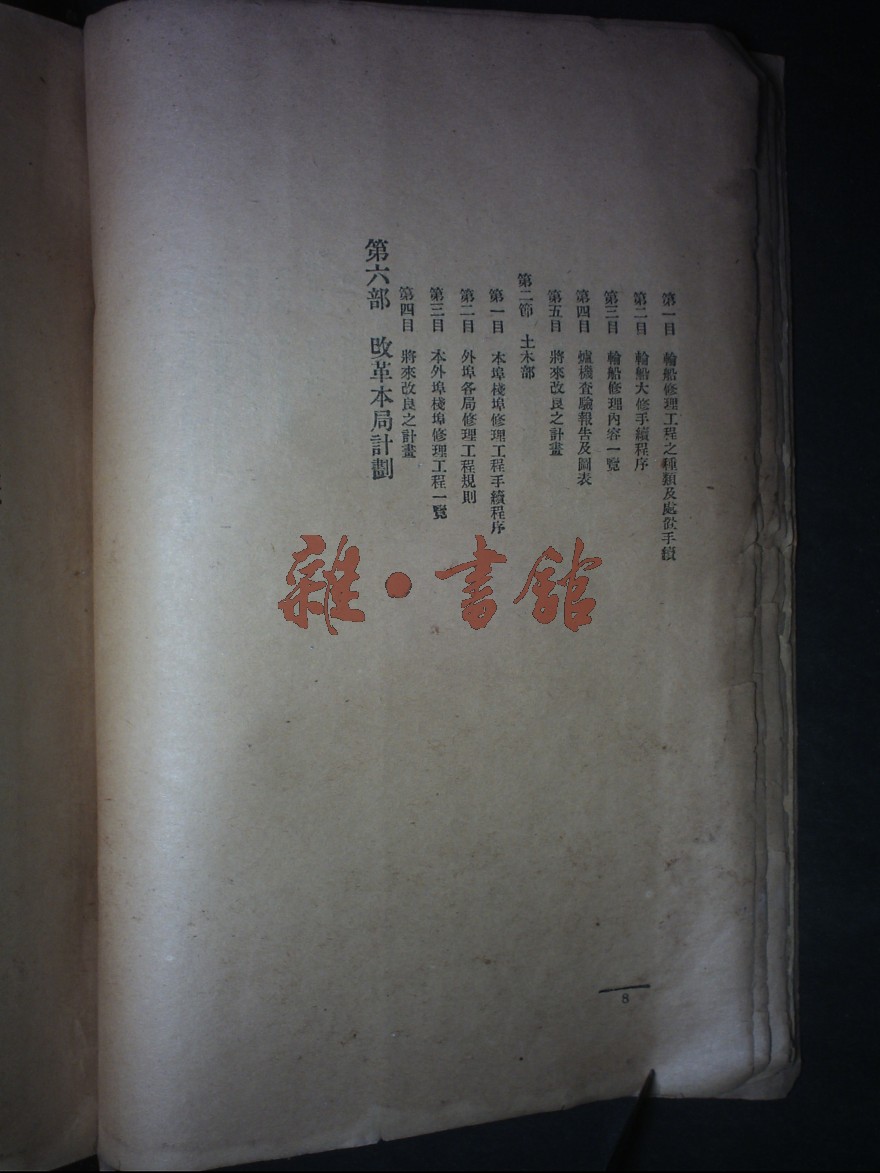 第一目　輪船修理工程之種類及處置手續
第二目　輪船大修手續程序
第三目　輪船修理內容一覽
第四目　爐機查驗報告及圖表
第五目　將來改良之計畫
第二節　土木部
第一目　本埠棧埠修理工程手續程序
第二目　外埠各局修理工程規則
第三目　本外埠棧埠修理工程一覽
第四目　將來改良之計畫
第六部　改革本局計劃
雜·書館
8